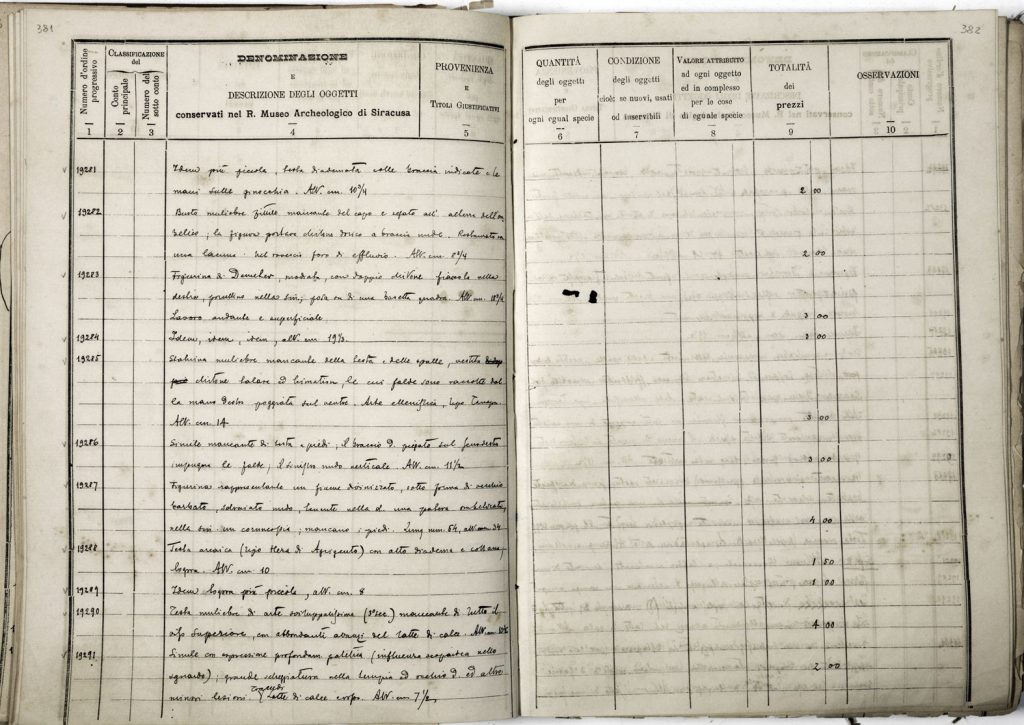 381
Numero d'ordine progressivo
CLASSIFICAZIONE
del
Conto principale
Numero del sotto conto
DENOMINAZIONE
E
DESCRIZIONE DEGLI OGGETTI
conservati nel R. Museo Archeologico di Siracusa
PROVENIENZA
E
TITOLI GIUSTIFICATIVI
1 2 3 4 5
19281 Idem più piccola, testa diademata colle braccia indicate e le
mani sulle ginocchia. Alt. cm. 10 3/4
19282 Busto muliebre fittile mancante del capo e segato all'altezza dell'om
belico; la figura portava chitone dorico a braccia nude. Restaurato in
una lacuna. Nel rovescio foro di effluvio. Alt. cm. 8 3/4
19283 Figurina di Demeter, modiata, con doppio chitone fiaccola nella
destra, porcellino nella sin; posa su di una basetta quadra. Alt. cm.
Lavoro andante e superficiale
19284 Idem, idem, idem, alt. cm. 19 1/2
19285 Statuina muliebre mancante della testa e delle spalle, vestita
chitone talare ed himation, le cui falde sono raccolte dal
la mano destra poggiata sul ventre. Arte ellenistica, tipo Tanagra.
Alt. cm. 14
19286 Simile mancante di testa e piedi; il braccio d. piegato sul
impugna le falde, il sinistro nudo verticale. Alt. cm. 11 1/2
19287 Figurina rappresentante un fiume divinizzato, sotto forma di vecchio
barbato, sdraiato nudo, tenente nella d. una patera ombelicata,
nella sin. un cornucopia; mancano i piedi. Lung. mm. 54, alt. mm 34
19288 Testa arcaica (tipo Hera di Agrigento) con alto diadema e collana,
logora. Alt. cm. 10
19289 Idem logora più piccola, alt. cm. 8
19290 Testa muliebre di arte sviluppatissima (3° sec) mancante di tutto il
superiore, con abbondanti avanzi del latte di calce. Alt. cm
19291 Simile con espressione profondam. patetica (influenza scopadea nello
sguardo); grande scheggiatura nella tempia ed orecchio d. ed altre
minori lesioni. Latte di calce Alt. cm. 7 1/2
382
QUANTITÀ
degli oggetti
per
ogni egual specie
6
CONDIZIONE
degli oggetti
cioè: se nuovi, usati
od inservibili
7
VALORE ATTRIBUITO
ad ogni oggetto
ed in complesso
per le cose
di eguale specie
8
TOTALITÀ
dei
prezzi
9
OSSERVAZIONI
10
2 00
2 00
3 00
3 00
3 00
3 00
4 00
1 50
1 00
4 00
2 00